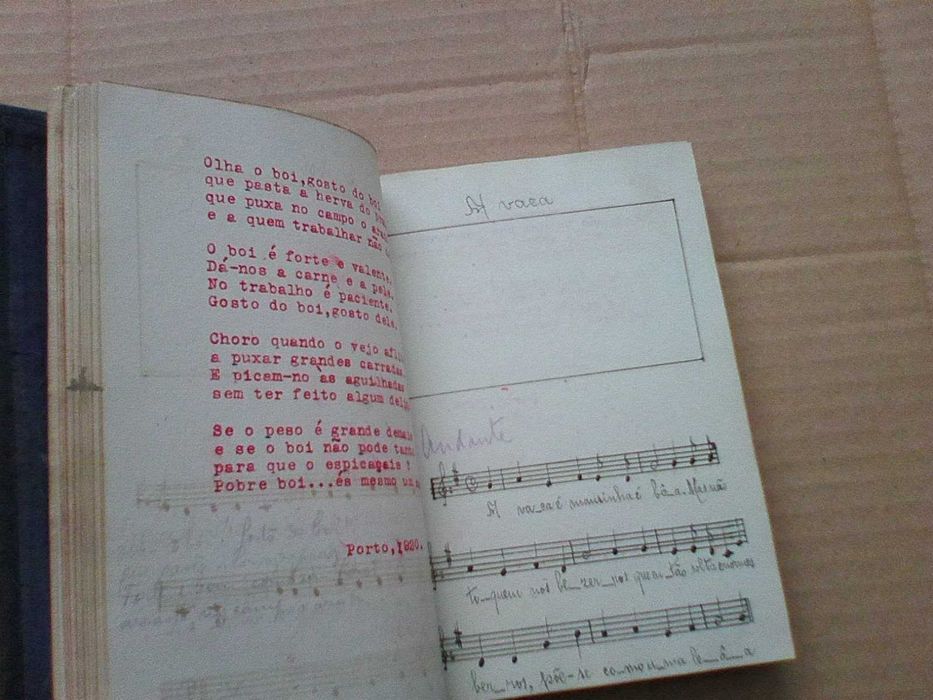 Olha o boi,gosto do boi
que pasta a herva do
que puxa no campo o
e a quem trabalhar não
O boi é forte e valente.
Dá-nos a carne e a pele.
No trabalho é paciente.
Gosto do boi,gosto dele.
Choro quando o vejo
a puxar grandes carradas
E picam-no às aguilhadas
sem ter feito algum
Se o peso é grande demais
e se o boi não pode
para que o espicaçais !
Pobre boi...és mesmo um
Porto,1920.
A vaca
Andante
A va_ca é mansinha é bô_a. Mas não
to_quem nos be_zer_ros que en_tão solta enormes
ber_ros, põe-se co_mo u_ma le_ô_a